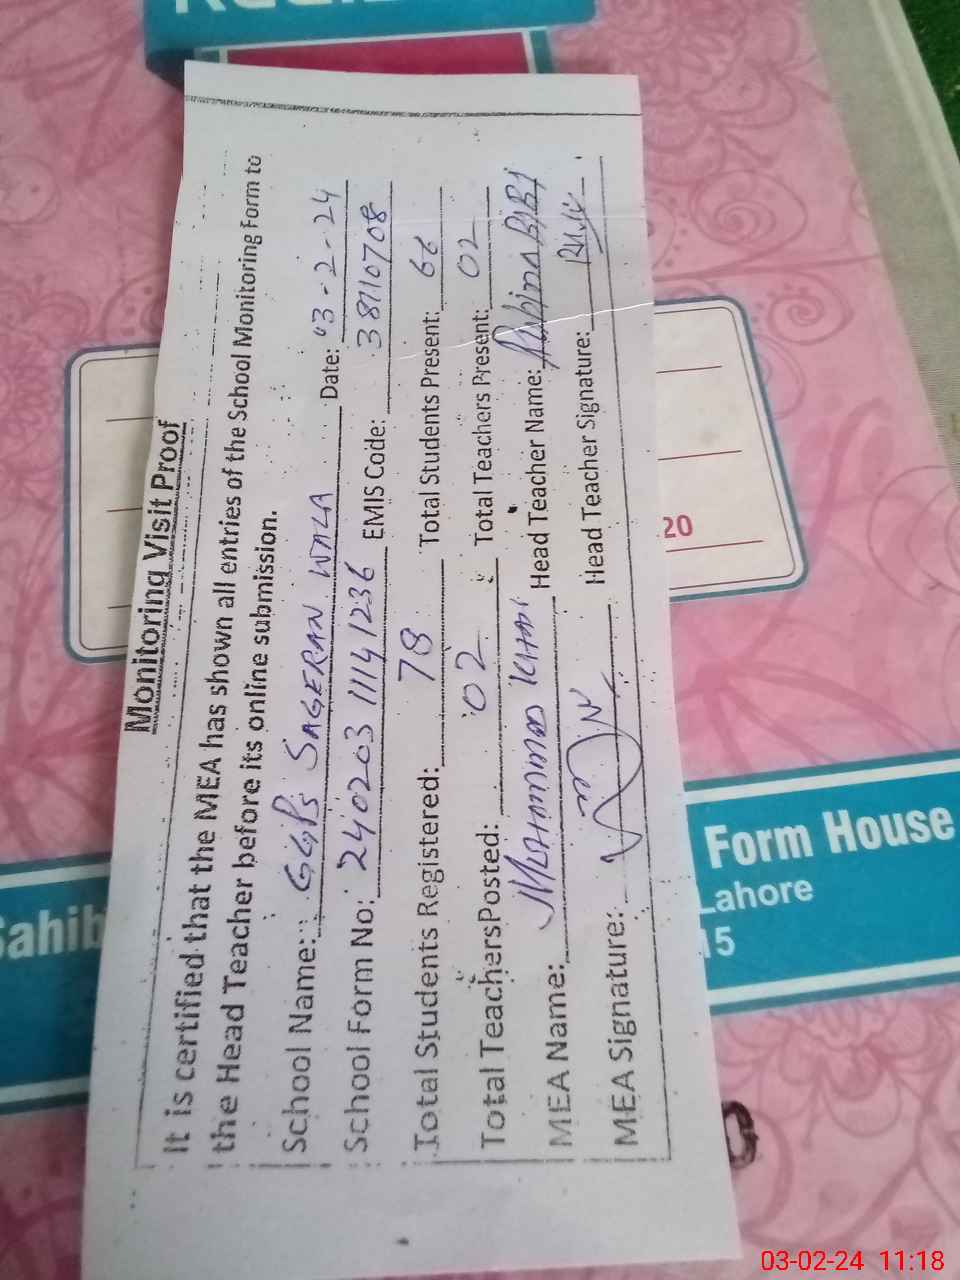 Monitoring Visit Proof
It is certified that the MEA has shown all entries of the School Monitoring Form to
the Head Teacher before its online submission.
School Name: GGPS SAGERAN WALA Date: 03-2-24
School Form No: 240203 1114 1236 EMIS Code: 38110708
Total Students Registered: 78 Total Students Present: 66
Total TeachersPosted: 02 Total Teachers Present: 02
MEA Name: MUHAMMAD KHAN Head Teacher Name: RUBINA BIBI
MEA Signature: Head Teacher Signature:
20
Sahib
Form House
Lahore
15
03-02-24 11:18